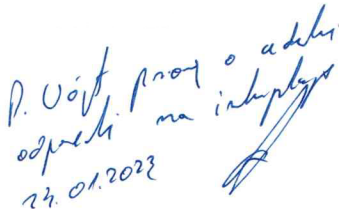 P. Wójt proszę o udzielenie
odpowiedzi na interpelację
24.01.2023